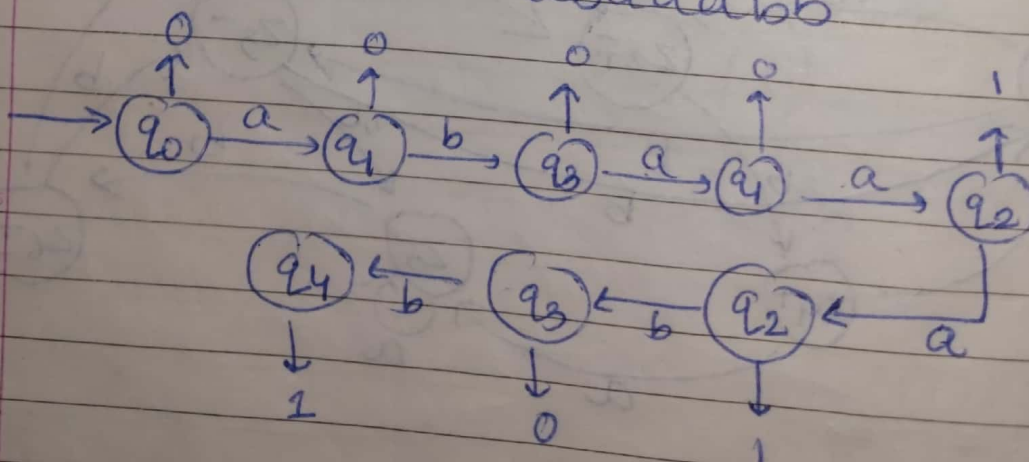 0 0 0 0 1
q0 a q1 b q3 a q1 a q2
q4 b q3 b q2 a
1 0 1